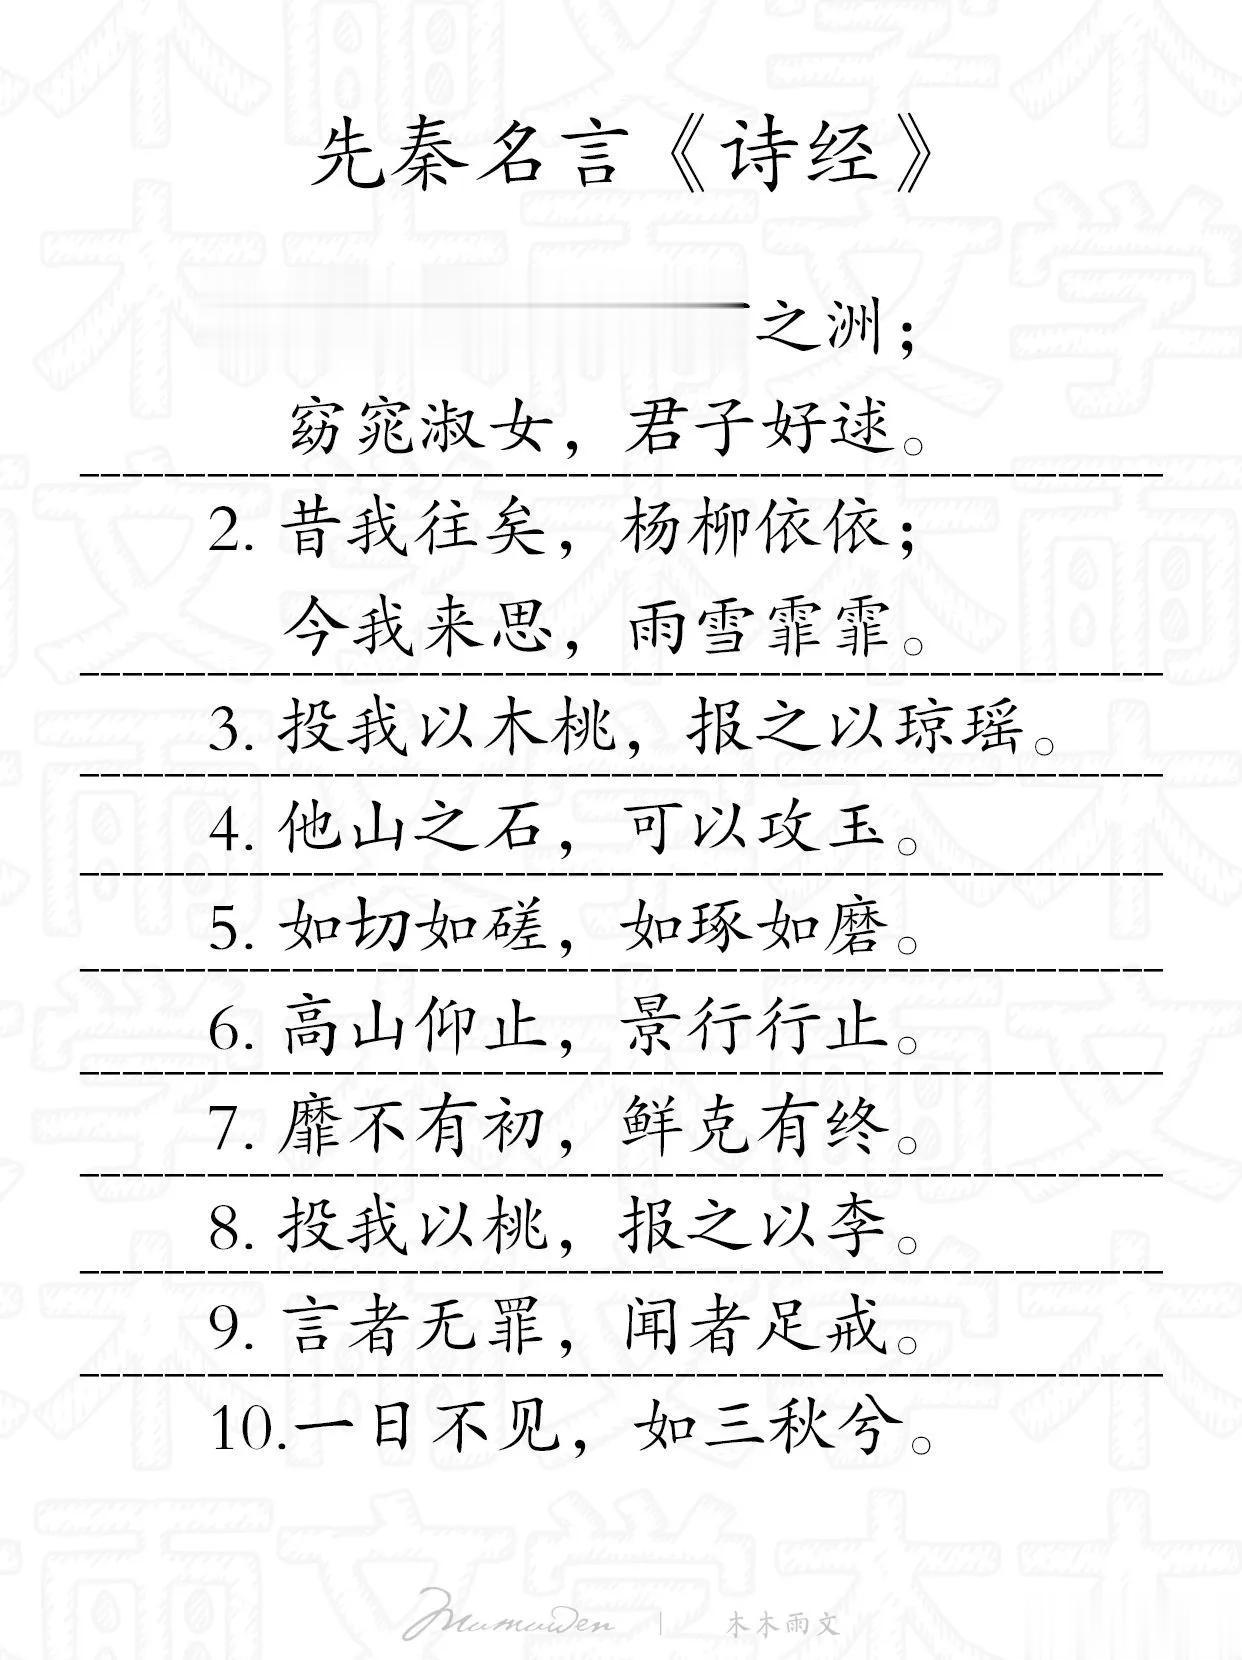 先秦名言《诗经》
之洲；
窈窕淑女，君子好逑。
2. 昔我往矣，杨柳依依；
今我来思，雨雪霏霏。
3. 投我以木桃，报之以琼瑶。
4. 他山之石，可以攻玉。
5. 如切如磋，如琢如磨。
6. 高山仰止，景行行止。
7. 靡不有初，鲜克有终。
8. 投我以桃，报之以李。
9. 言者无罪，闻者足戒。
10.一日不见，如三秋兮。
Mumuwen | 木木雨文